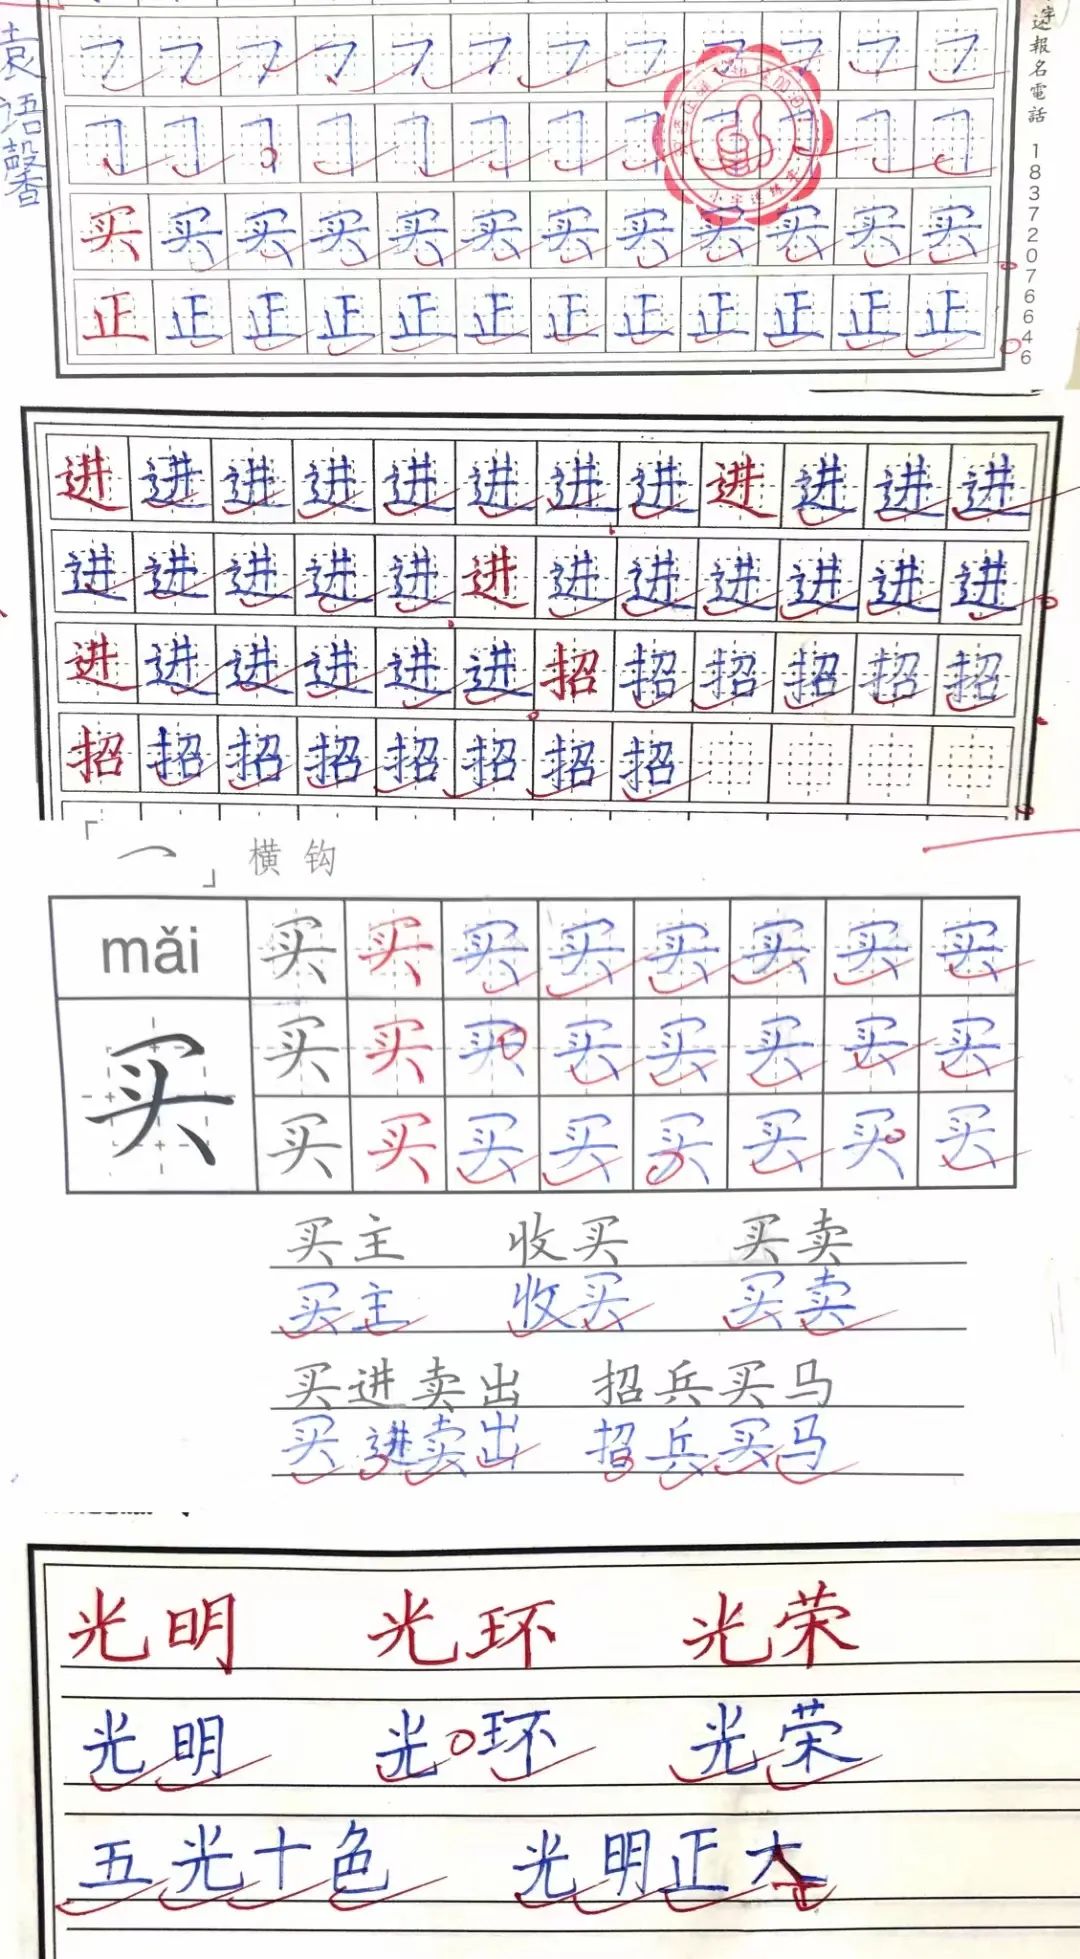 袁语馨
报名電話 18372076646
买买买买买买买买买买买买
正正正正正正正正正正正正
进进进进进进进进进进进进
进进进进进进进进进进进进
进进进进进进招招招招招招
招招招招招招招招
「㇖」横钩
mǎi 买买买买买买买买
买 买买买买买买买买
买买买买买买买买
买主 收买 买卖
买主 收买 买卖
买进卖出 招兵买马
买进卖出 招兵买马
光明 光环 光荣
光明 光环 光荣
五光十色 光明正大